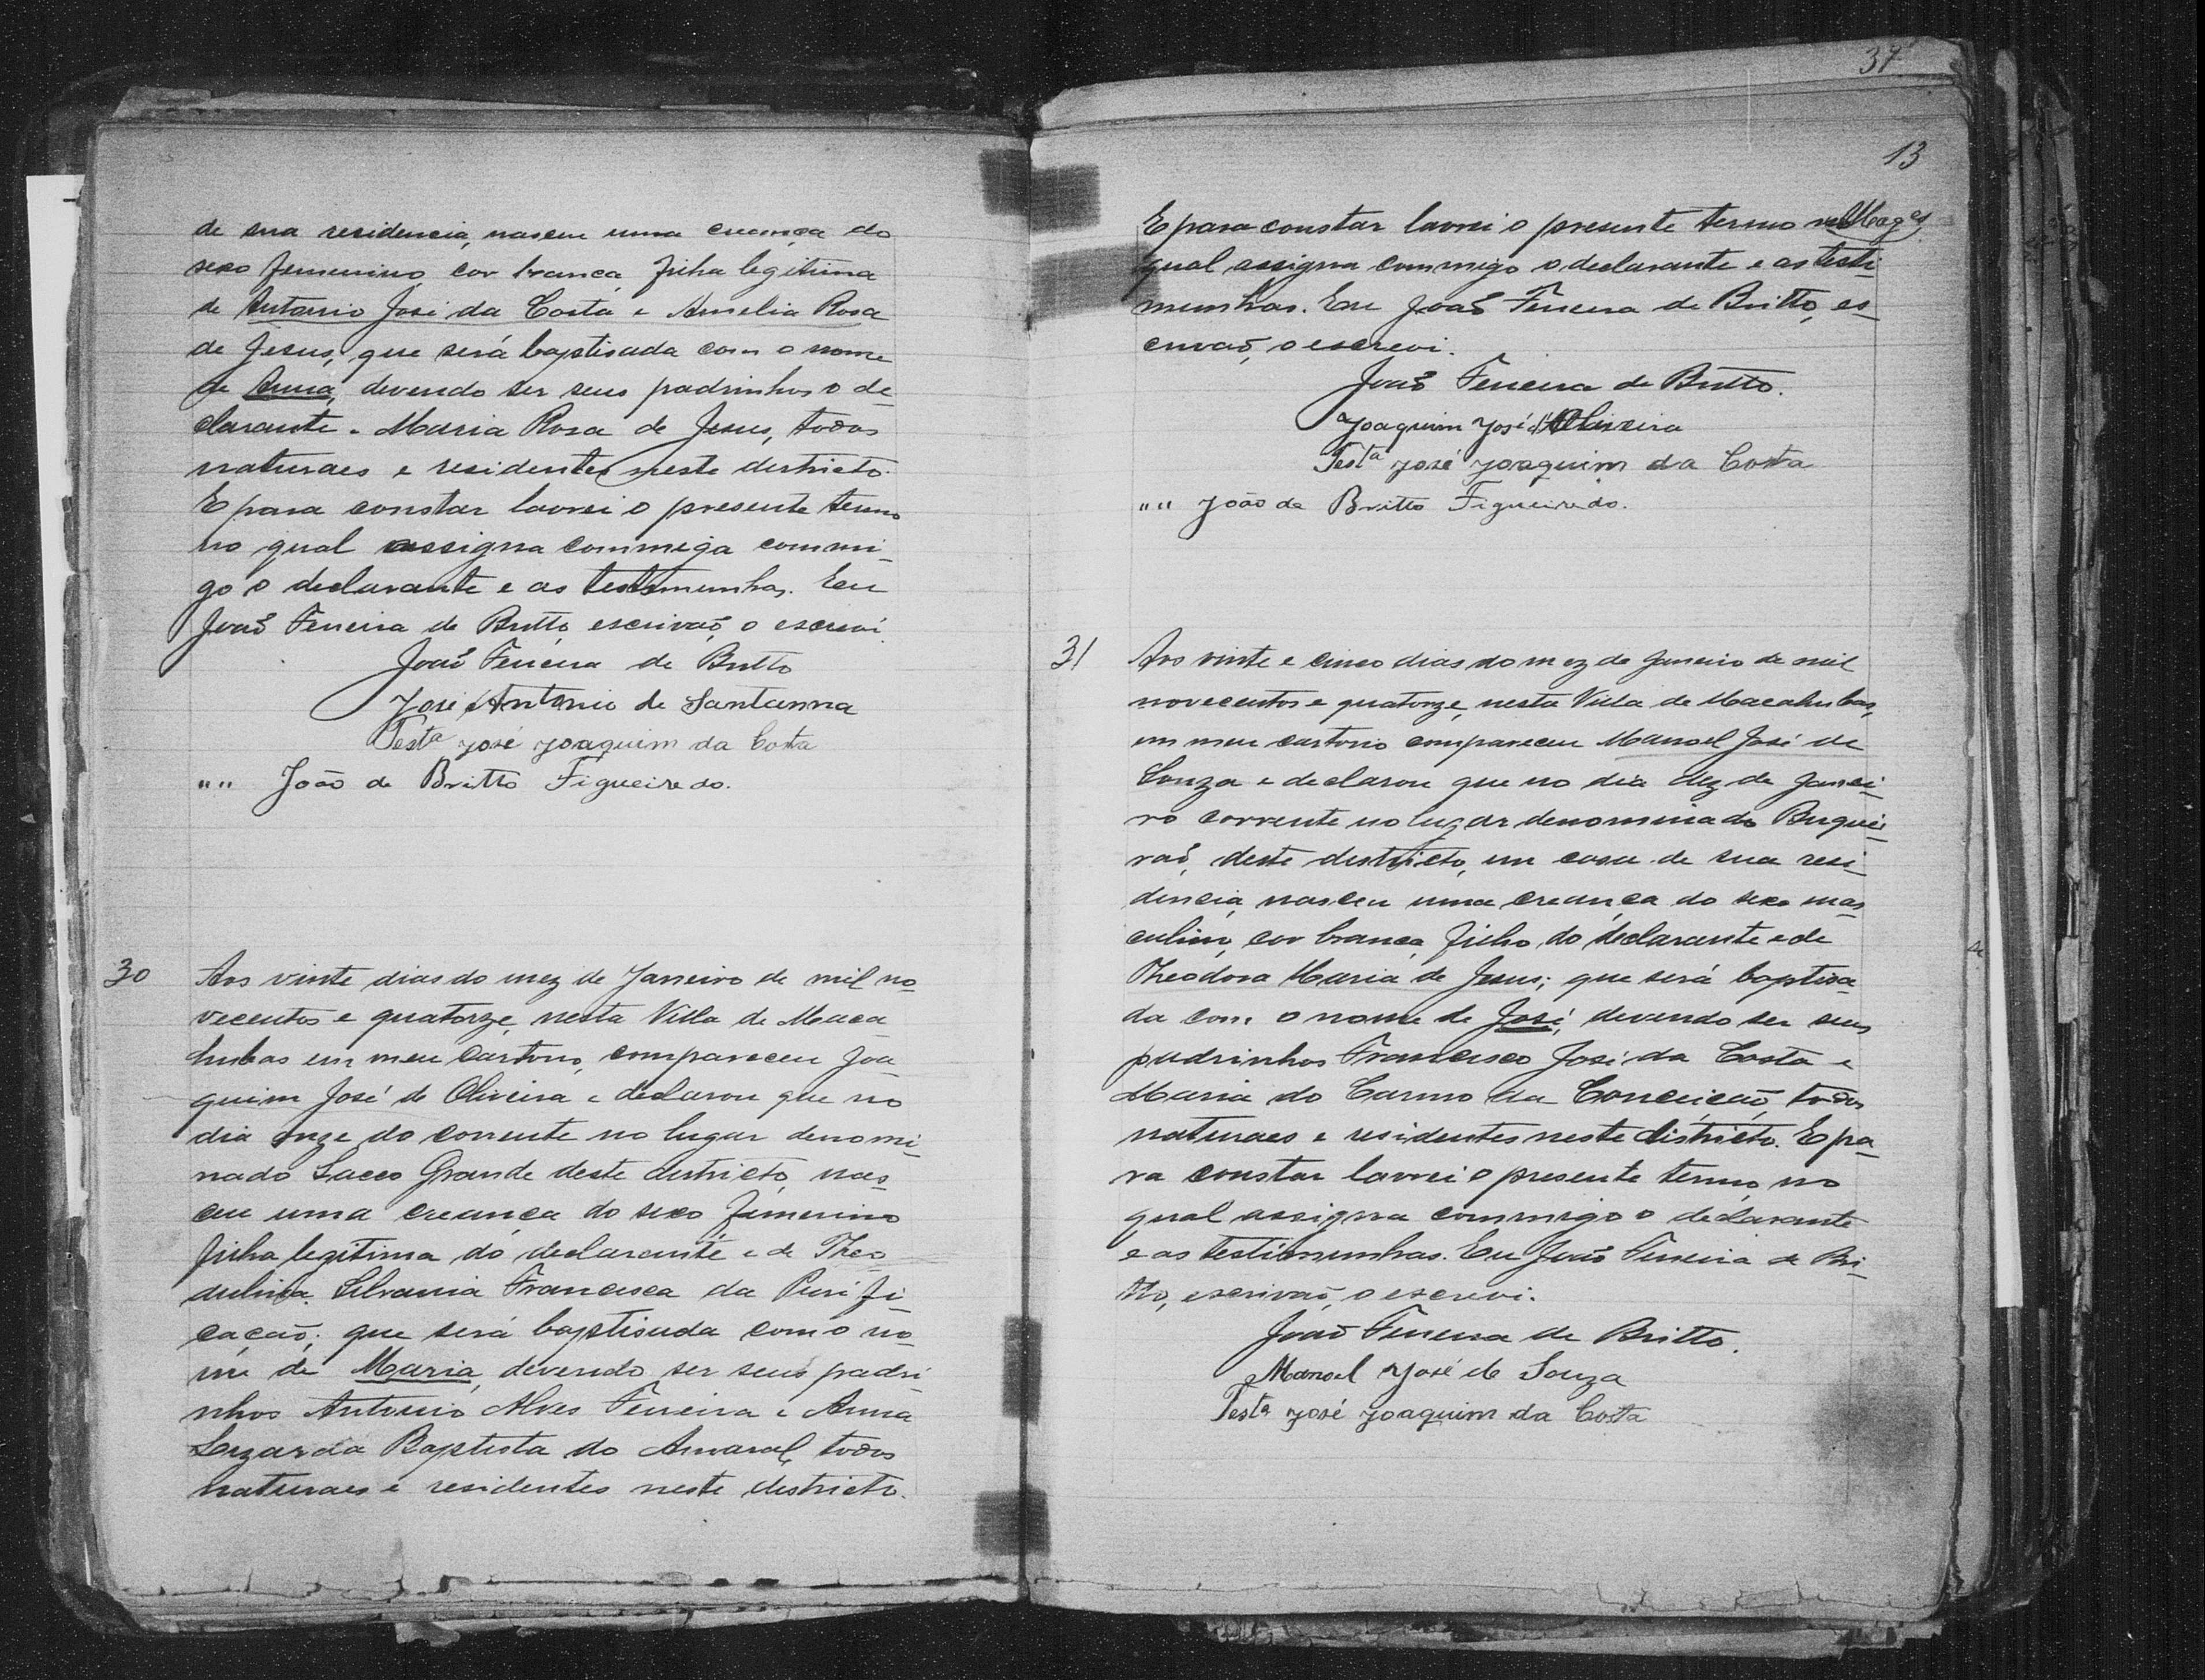 de sua residencia, nasceu uma creança do
sexo femenino, cor branca, filha legitima
de Antonio José da Costa e Amelia Rosa
de Jesus, que será baptisada com o nome
de Anna, devendo ser seus padrinhos o de-
clarante e Maria Rosa de Jesus, todos
naturaes e residentes neste destricto.
E para constar lavrei o presente termo
no qual assigna commiga commi-
go o declarante e as testimunhas. Eu
João Ferreira de Britto, escrivaõ, o escrevi.
João Ferreira de Britto
José Antonio de Santanna
Testª José Joaquim da Costa
"" João de Britto Figueiredo.
30 Aos vinte dias do mez de Janeiro de mil no-
vecentos e quatorze, nesta Villa de Maca-
hubas em meu cartorio, compareceu Joa-
quim José de Oliveira e declarou que no
dia onze do corrente no lugar denomi-
nado Sacco Grande deste destricto, nas-
ceu uma creança do sexo femenino
filha legitima do declarante e de Theo
dulina Silvania Francisca da Purifi-
cação; que será baptisada com o no-
me de Maria, devendo ser seus padri-
nhos Antonio Alves Ferreira e Anna
Lizarda Baptista do Amaral, todos
naturaes e residentes neste destricto.
37
13
E para constar lavrei o presente termo no
qual assigna commigo o declarante e as testi-
munhas. Eu João Ferreira de Britto, es-
crivaõ, o escrevi.
João Ferreira de Britto.
Joaquim José d'Oliveira
Testª José Joaquim da Costa
"" João de Britto Figueiredo.
31 Aos vinte e cinco dias do mez de Janeiro de mil
novecentos e quatorze, nesta Villa de Macahubas,
em meu cartorio compareceu Manoel José de
Souza e declarou que no dia dez de Janei-
ro corrente no lugar denominado Buquei-
raõ, deste destricto, em casa de sua resi-
dencia, nasceu uma creança do sexo mas-
culino, cor branca, filho do declarante e de
Theodora Maria de Jesus; que será baptisa-
da com o nome de José, devendo ser seus
padrinhos Francisco José da Costa e
Maria do Carmo da Conceição, todos
naturaes e residentes neste districto. E pa-
ra constar lavrei o presente termo, no
qual assigna commigo o declarante
e as testimunhas. Eu João Ferreira de Bri-
tto, escrivaõ, o escrevi.
João Ferreira de Britto.
Manoel José de Souza
Testª José Joaquim da Costa